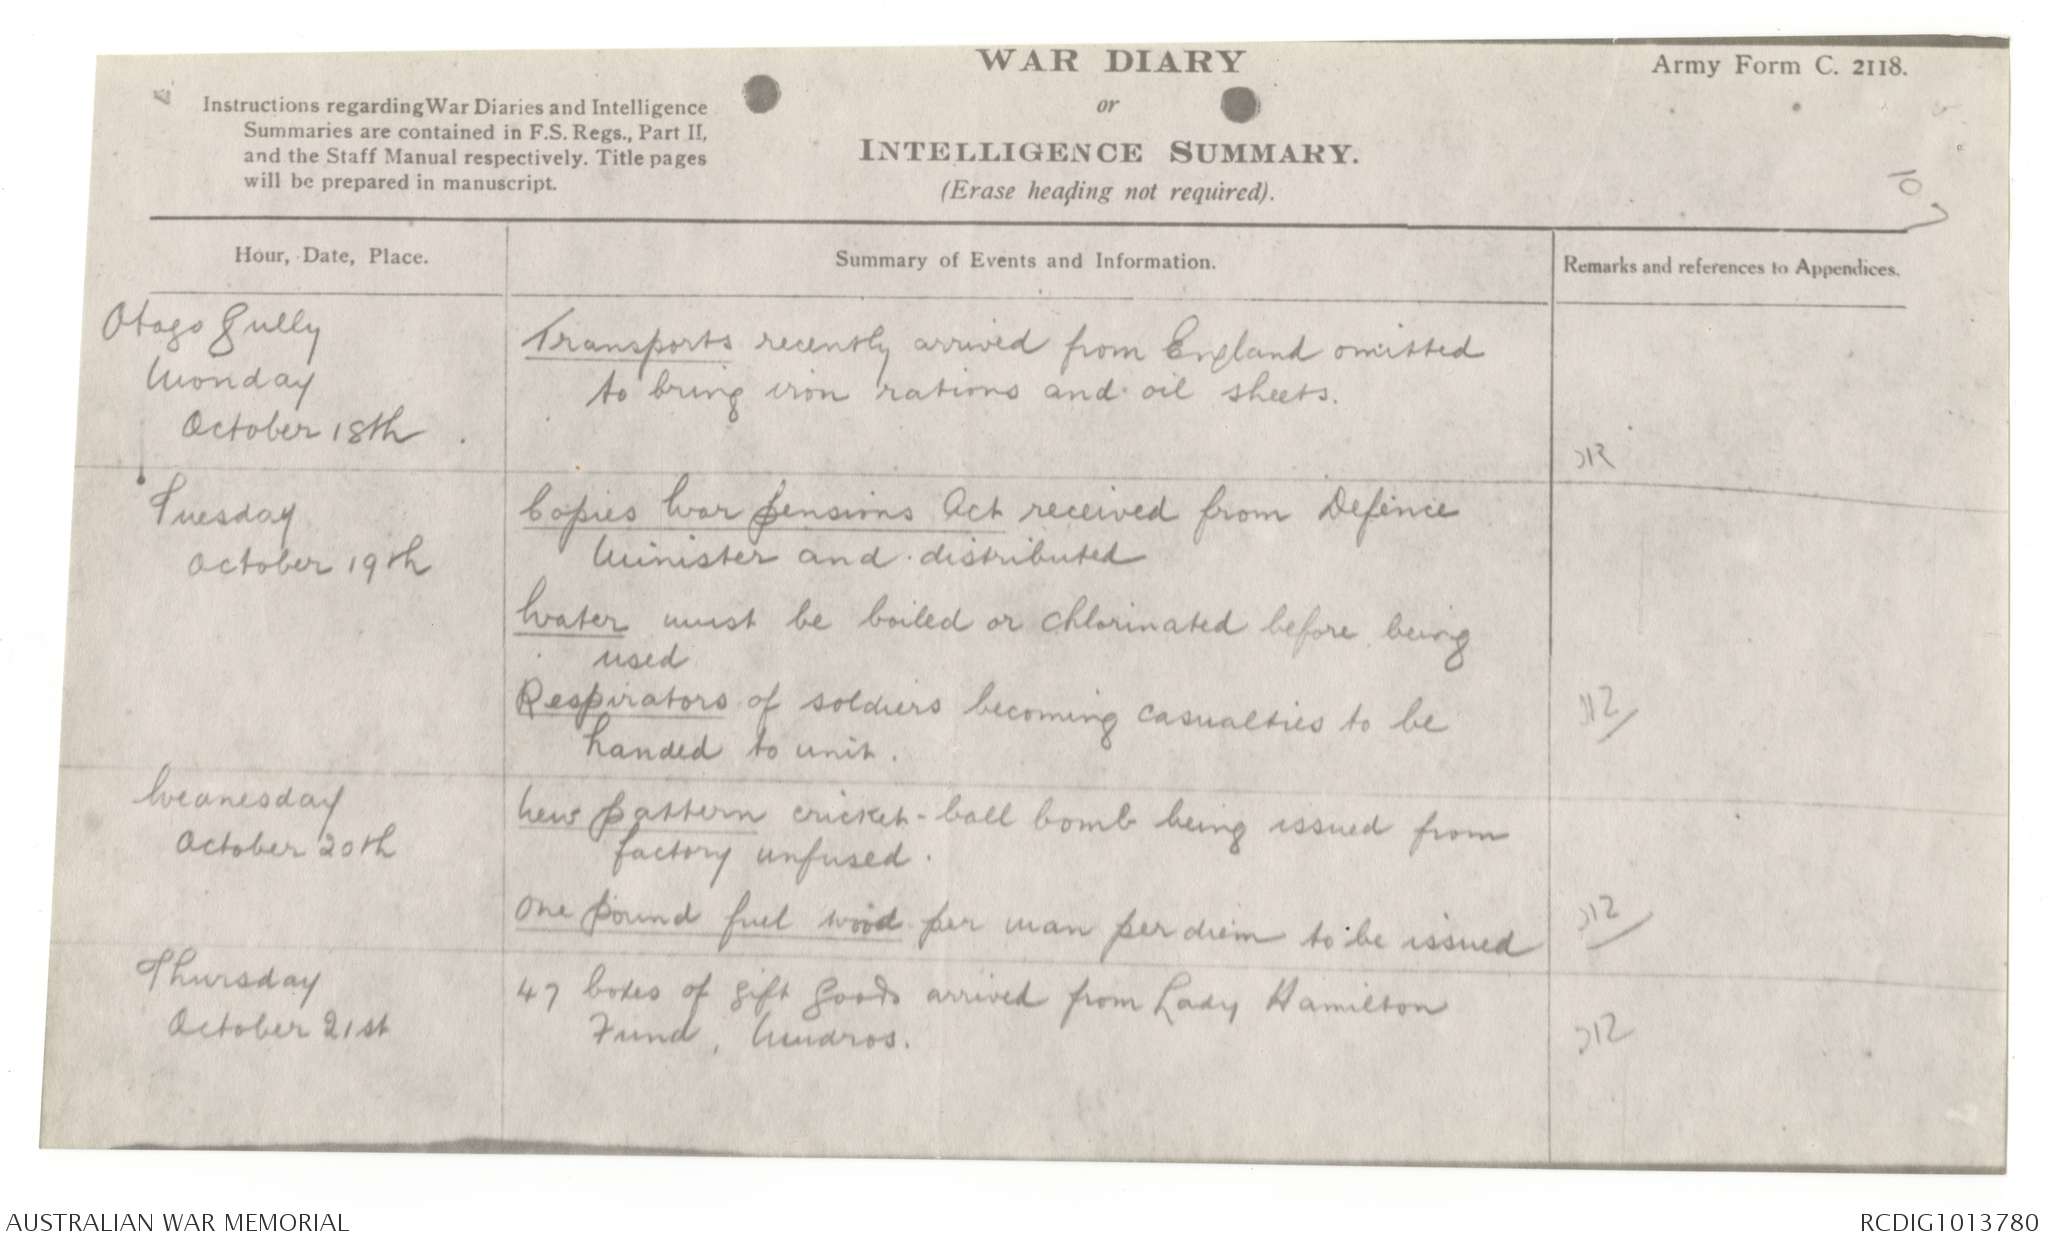 WAR DIARY
or
INTELLIGENCE SUMMARY.
(Erase heading not required).
Army Form C. 2118.
Instructions regarding War Diaries and Intelligence
Summaries are contained in F.S. Regs., Part II,
and the Staff Manual respectively. Title pages
will be prepared in manuscript.
10
Hour, Date, Place.
Summary of Events and Information.
Remarks and references to Appendices.
Otago Gully
Monday
October 18th
Transports recently arrived from England omitted
to bring iron rations and oil sheets.
Tuesday
October 19th
Copies War Pensions Act received from Defence
Minister and distributed
Water must be boiled or chlorinated before being
used
Respirators of soldiers becoming casualties to be
handed to unit.
Wednesday
October 20th
New pattern cricket-ball bomb being issued from
factory unfused.
One pound fuel wood per man per diem to be issued
Thursday
October 21st
47 boxes of gift goods arrived from Lady Hamilton
Fund, Mudros.
AUSTRALIAN WAR MEMORIAL
RCDIG1013780